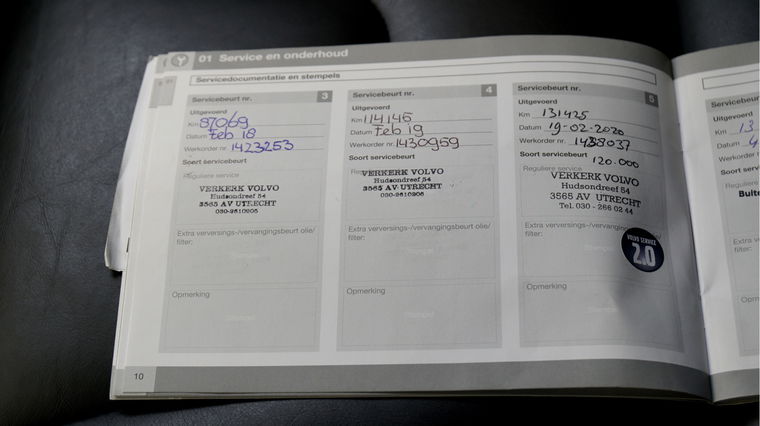 01 Service en onderhoud
Servicedocumentatie en stempels
Servicebeurt nr. 3
Uitgevoerd
Km 87069
Datum Feb 18
Werkorder nr. 1423253
Soort servicebeurt
Reguliere service
VERKERK VOLVO
Hudsondreef 54
3565 AV UTRECHT
030-2610905
Extra verversings-/vervangingsbeurt olie/
filter:
Stempel
Opmerking
Stempel
Servicebeurt nr. 4
Uitgevoerd
Km 114145
Datum Feb 19
Werkorder nr. 1430959
Soort servicebeurt
VERKERK VOLVO
Hudsondreef 54
3565 AV UTRECHT
Extra verversings-/vervangingsbeurt olie/
filter:
Opmerking
Stempel
Servicebeurt nr. 5
Uitgevoerd
Km 131425
Datum 19-02-2020
Werkorder nr.
Soort servicebeurt 120.000
Reguliere service
VERKERK VOLVO
Hudsondreef 54
3565 AV UTRECHT
Tel. 030 - 266 02 44
Extra verversings-/vervangingsbeurt olie/
filter:
VOLVO SERVICE
2.0
Opmerking
10
Uitgevoerd
Km 13
Datum
Werkorder
Reguliere
Extra
filter: